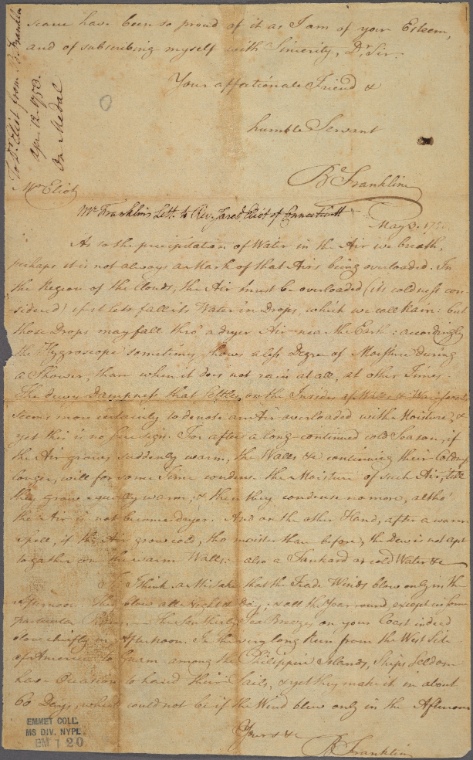 scarce have been so proud of it as I am of your Esteem,
and of subscribing myself with Sincerity, Dr Sir.
Your affectionate Friend &
humble Servant
B. Franklin
from B. Franklin
Apr. 12. 1753.
Medal
Mr Eliot
Mr Franklin's Lettr to Revd Jared Eliot of Connecticutt
May 3. 
As to the precipitation of Water in the Air we breath,
perhaps it is not always a Mark of that Airs being overloaded. In
the Region of the Clouds, the Air must be overloaded its coldness con
sidered) ere it lets fall its Water in Drops, which we call Rain: but
those Drops may fall thro a dryer Air near the Earth: accordingly
the Hygroscope sometimes shows a less Degree of Moisture during
a Shower, than when it does not rain at all, at other Times.
The dewy Dampness that settles on the Insides of Walls & Wainscots,
seems more certainly to denote an Air overloaded with Moisture, &
yet this is no sure Sign. For after a long-continued cold Season, if
the Air grows suddenly warm, the Walls &c continuing their Coldness
longer, will for some Time condense the Moisture of such Air, till
they grow equally warm, & then they condense no more, altho'
the Air is not become dryer. And on the other Hand, after a warm
spell, if the Air grows cold, tho moister than before, the dew is not apt
to gather on the warm Walls. also a Tankard as cold Water &c
I Think a Mistake that the Trade Winds blow only in the
Afternoon They blow all Night & Day, & all the Year round, except in some
particular The Sea Breezes on your Coast indeed
blow chiefly in Afternoon. In the very long Run from the West Side
of America to among the Philippine Islands, Ships seldom
have Occasion to hand their Sails, & yet they make it in about
60 Days, which could not be if the Wind blew only in the Afternoon
Your &c
B. Franklin
EMMET COLL.
MS DIV. NYPL.
EM 120